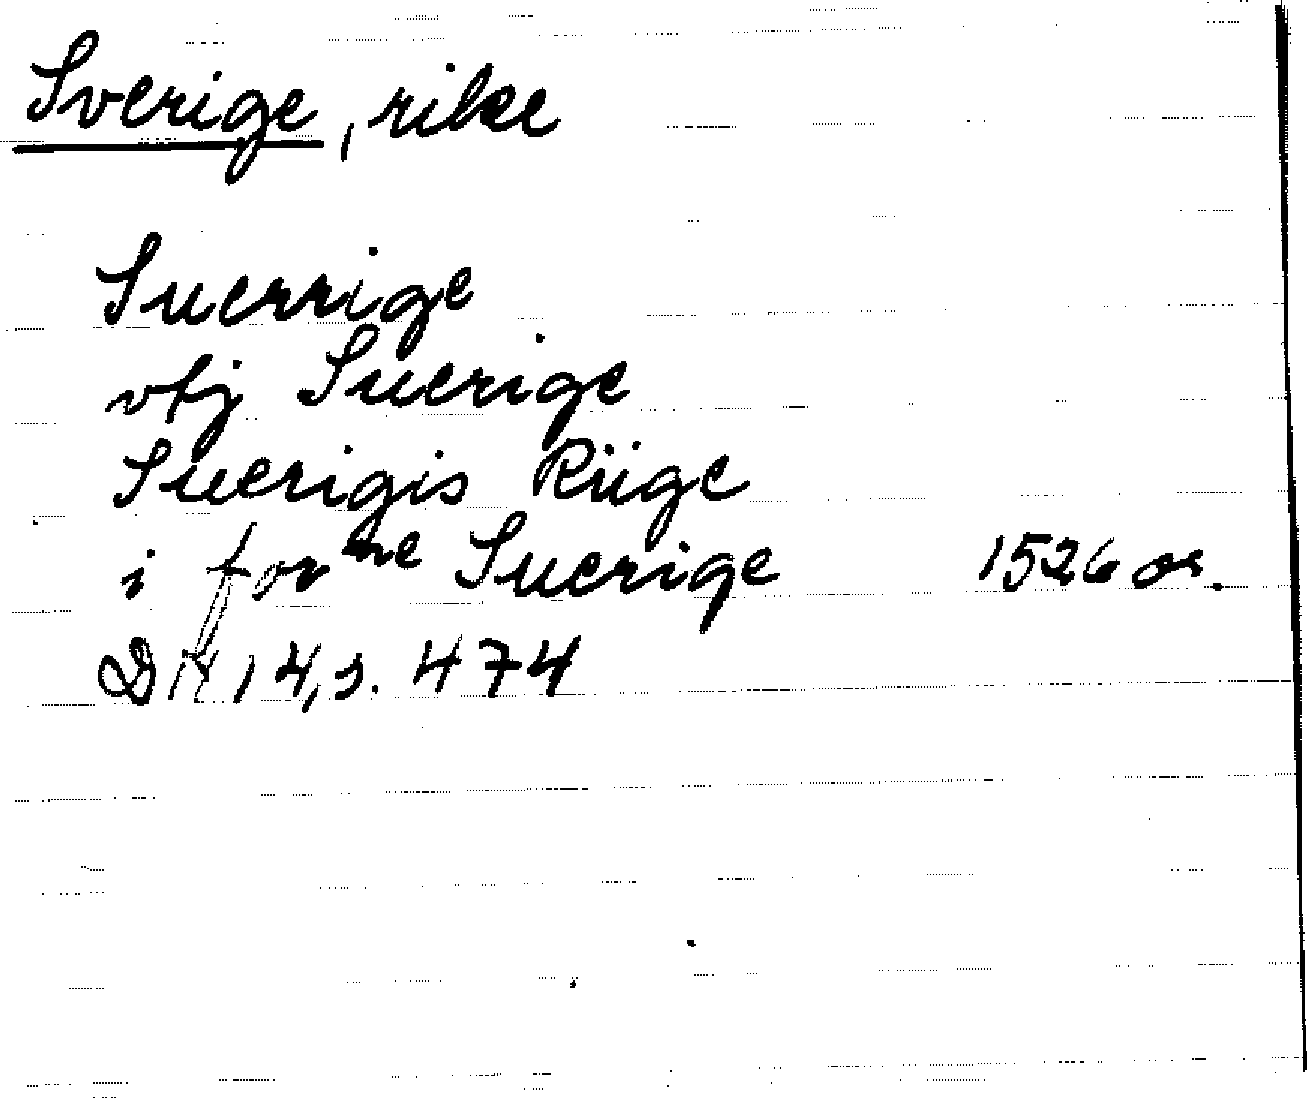 Sverige, rike
Suerrige
vtj Suerige
Suerigis Riige
i for ne Suerige 1526 or.
DN 14, s. 474